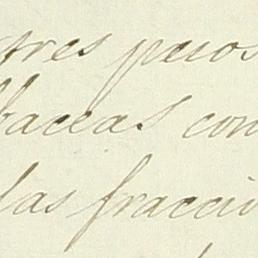 tres pesos
baceas con
las fraccio